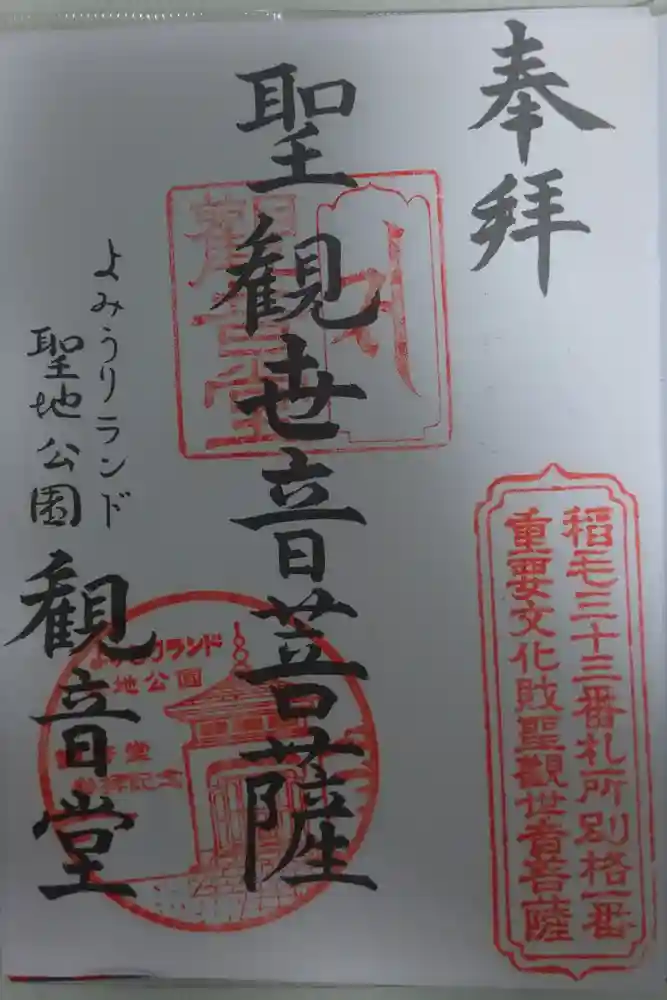 奉拝
稲毛三十三番札所別格一番
重要文化財聖觀世音菩薩
聖観世音菩薩
觀音堂
よみうりランド
聖地公園
観音堂
ランド
地公園
堂
参拝記念